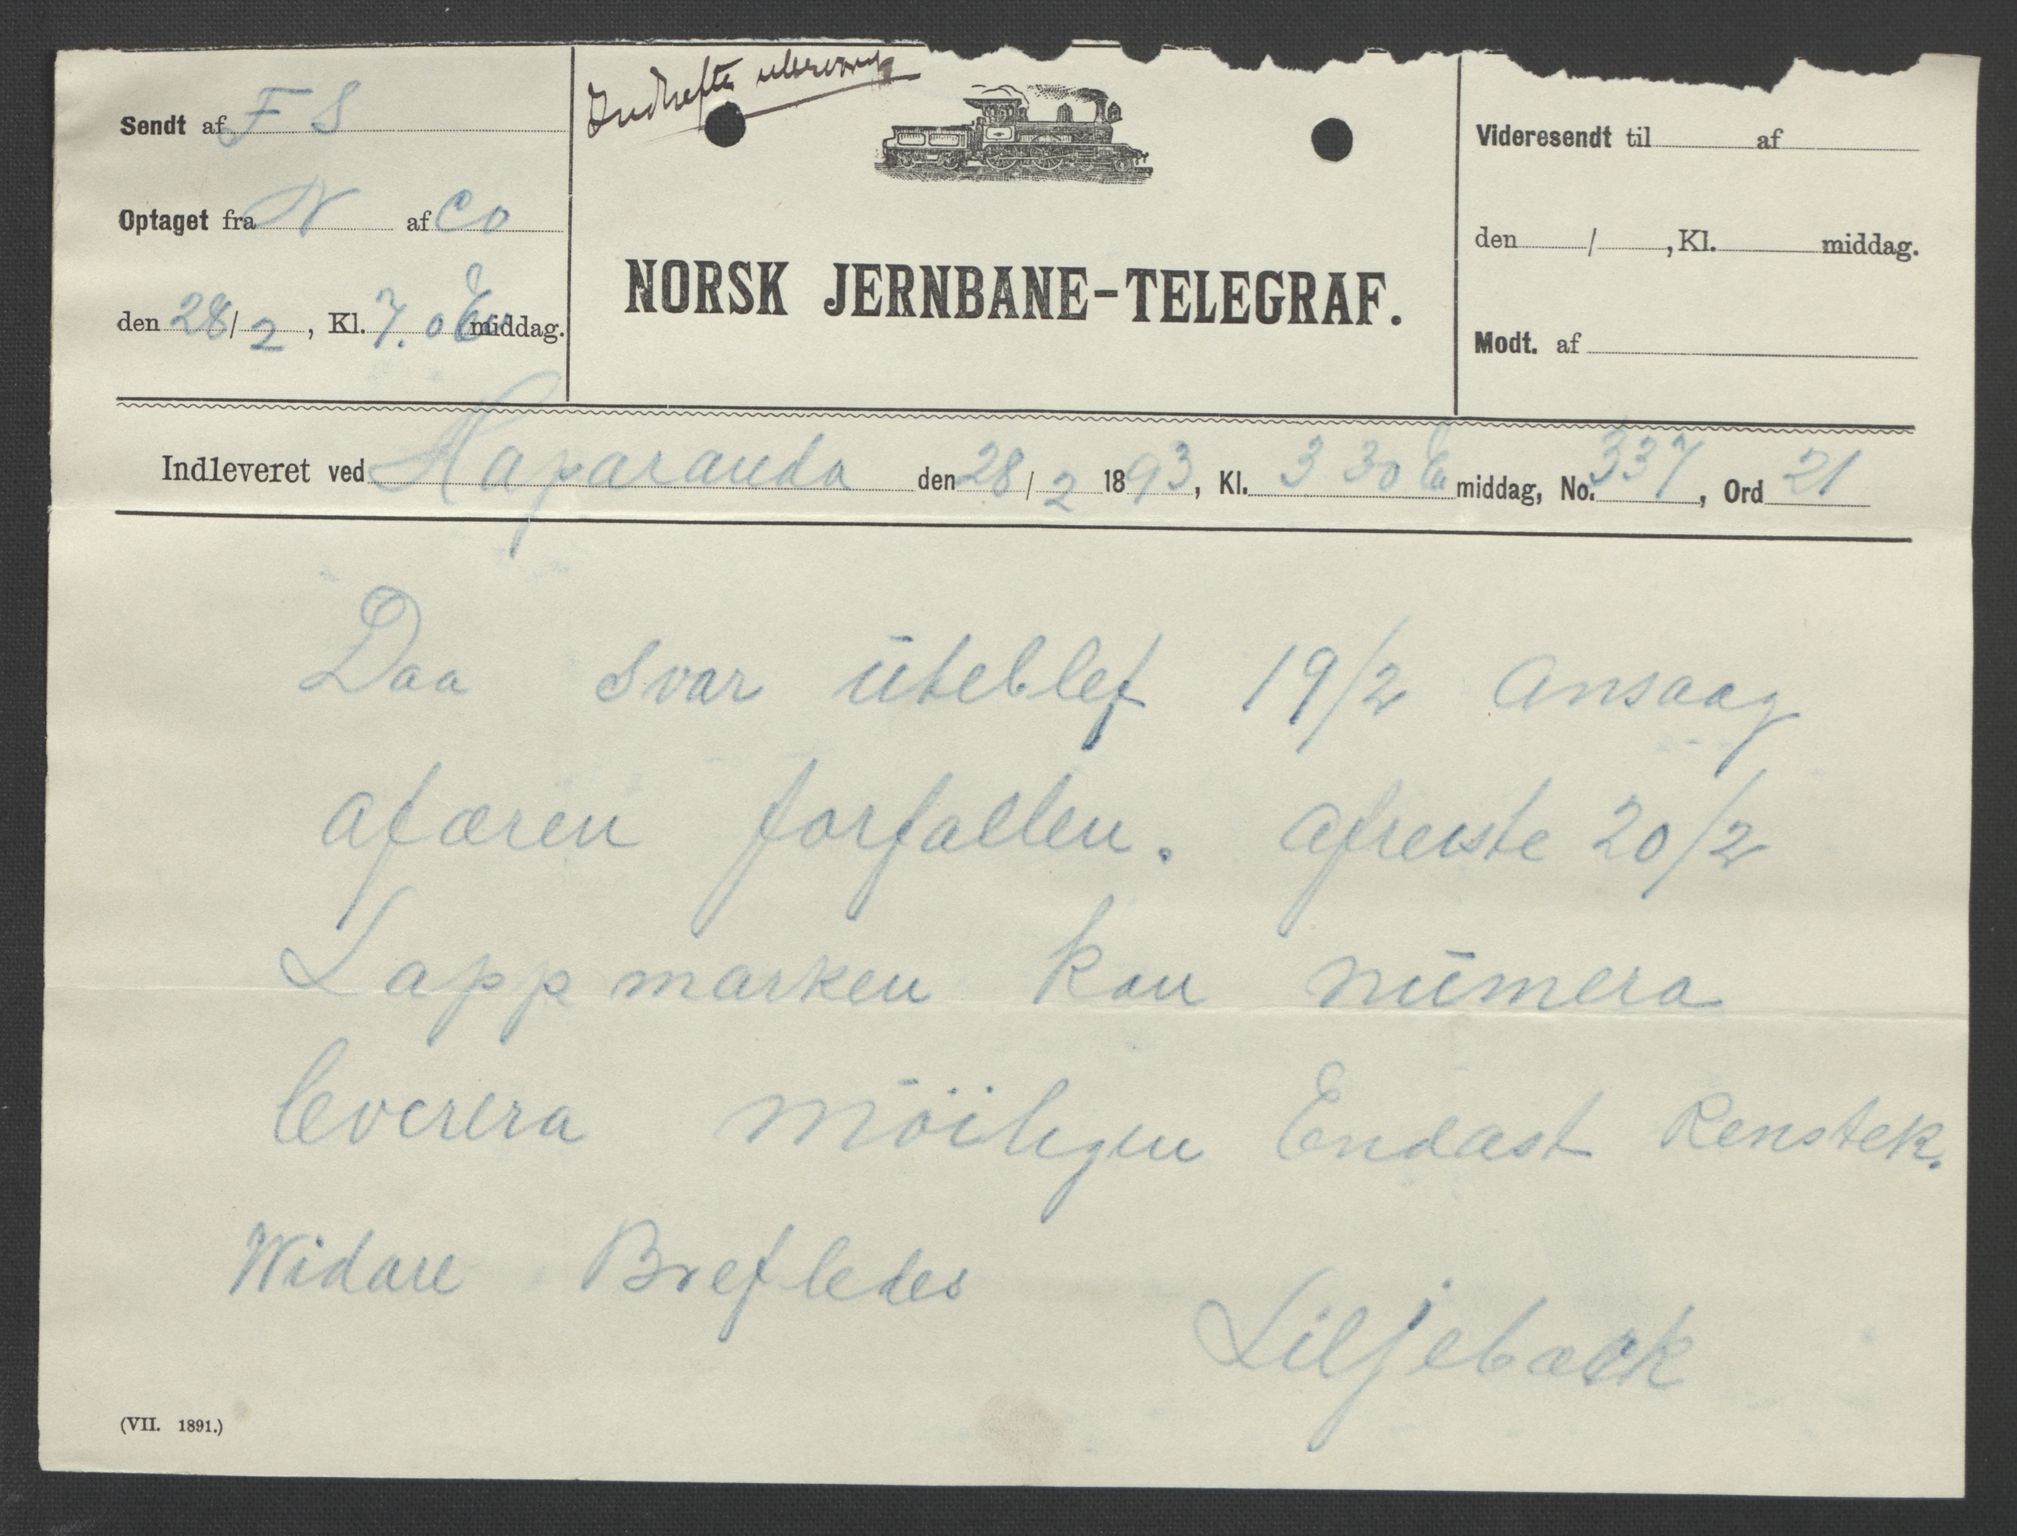 Sendt af F S
Optaget fra N af Co
den 28/2, Kl. 7.0 Em middag.
NORSK JERNBANE-TELEGRAF.
Videresendt til af
den / , Kl. middag.
Modt. af
Indleveret ved Haparanda den 28/2 1893, Kl. 3 30 Em middag, No. 337, Ord 21
Daa svar ūteblef 19/2 ansaag
afæren forfallen. afreiste 20/2
Lappmarken kan nūmera
leverera möiligen Endast Renstek.
Widare Brefledes
Liljeback
(VII. 1891.)